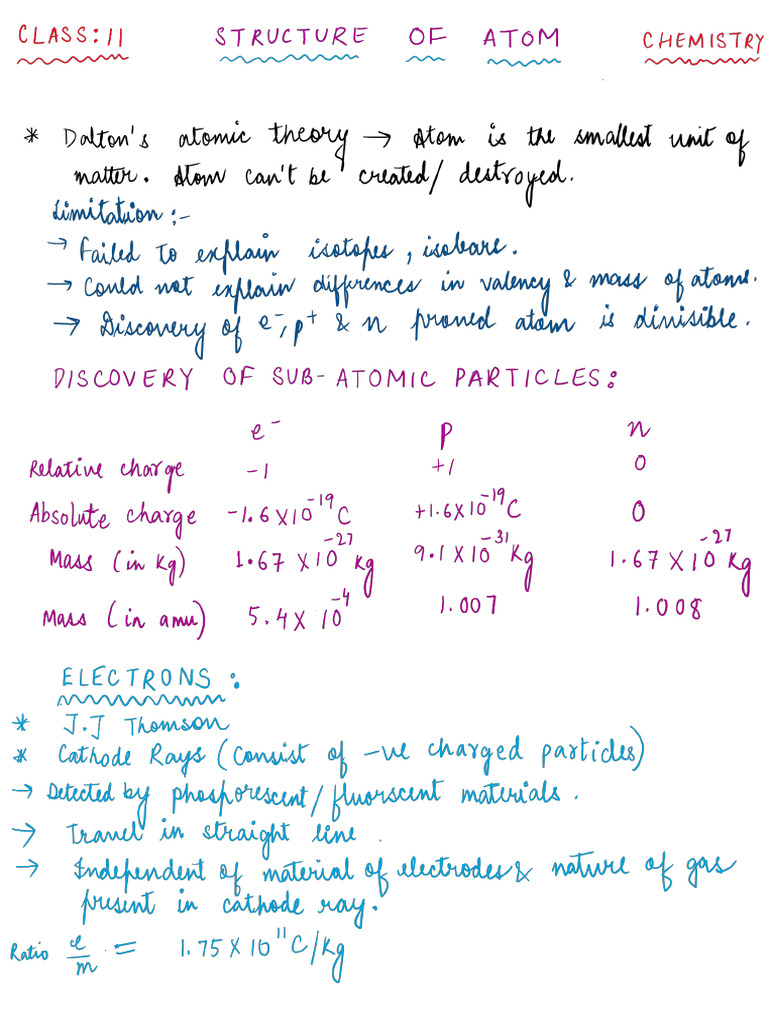 CLASS:11 STRUCTURE OF ATOM CHEMISTRY
* Dalton's atomic theory → Atom is the smallest unit of
matter. Atom can't be created/destroyed.
Limitation:-
→ Failed to explain isotopes, isobars.
→ Could not explain diffrences in valency & mass of atoms.
→ Discovery of e⁻, p⁺ & n proved atom is divisible.
DISCOVERY OF SUB-ATOMIC PARTICLES:
e⁻ p n
Relative charge -1 +1 0
Absolute charge -1.6×10⁻¹⁹C +1.6×10⁻¹⁹C 0
Mass (in kg) 1.67×10⁻²⁷ kg 9.1×10⁻³¹ Kg 1.67×10⁻²⁷ kg
Mass (in amu) 5.4×10⁻⁴ 1.007 1.008
ELECTRONS:
* J.J Thomson
* Cathode Rays (Consist of -ve charged particles)
→ Detected by phosporescent/fluorscent materials.
→ Travel in straight line.
→ Independent of material of electrodes & nature of gas
present in cathode ray.
Ratio e/m = 1.75×10¹¹ C/kg